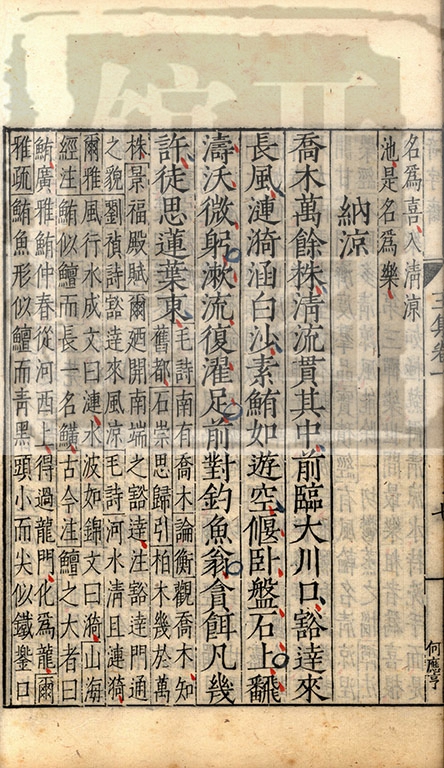 名為喜入清凉
池是名為樂
納涼
喬木萬餘株清流貫其中前臨大川口豁達來
長風漣漪涵白沙素鮪如遊空偃卧盤石上翻
濤沃微躬漱流復濯足前對釣魚翁貪餌凡幾
許徒思蓮葉東
毛詩南有喬木論衡觀喬木知
舊都石崇思歸引柏木幾於萬
株景福殿賦爾廼開南端之豁達注豁達門通
之貌劉禎詩豁達來風涼毛詩河水清且漣漪
爾雅風行水成文曰漣水波如錦文曰漪山海
經注鮪似鱣而長一名鱑古今注鱣之大者曰
鮪廣雅鮪仲春從河西上得過龍門化為龍爾
雅疏鮪魚形似鱣而青黑頭小而尖似鐵鍪口
七
何應亨